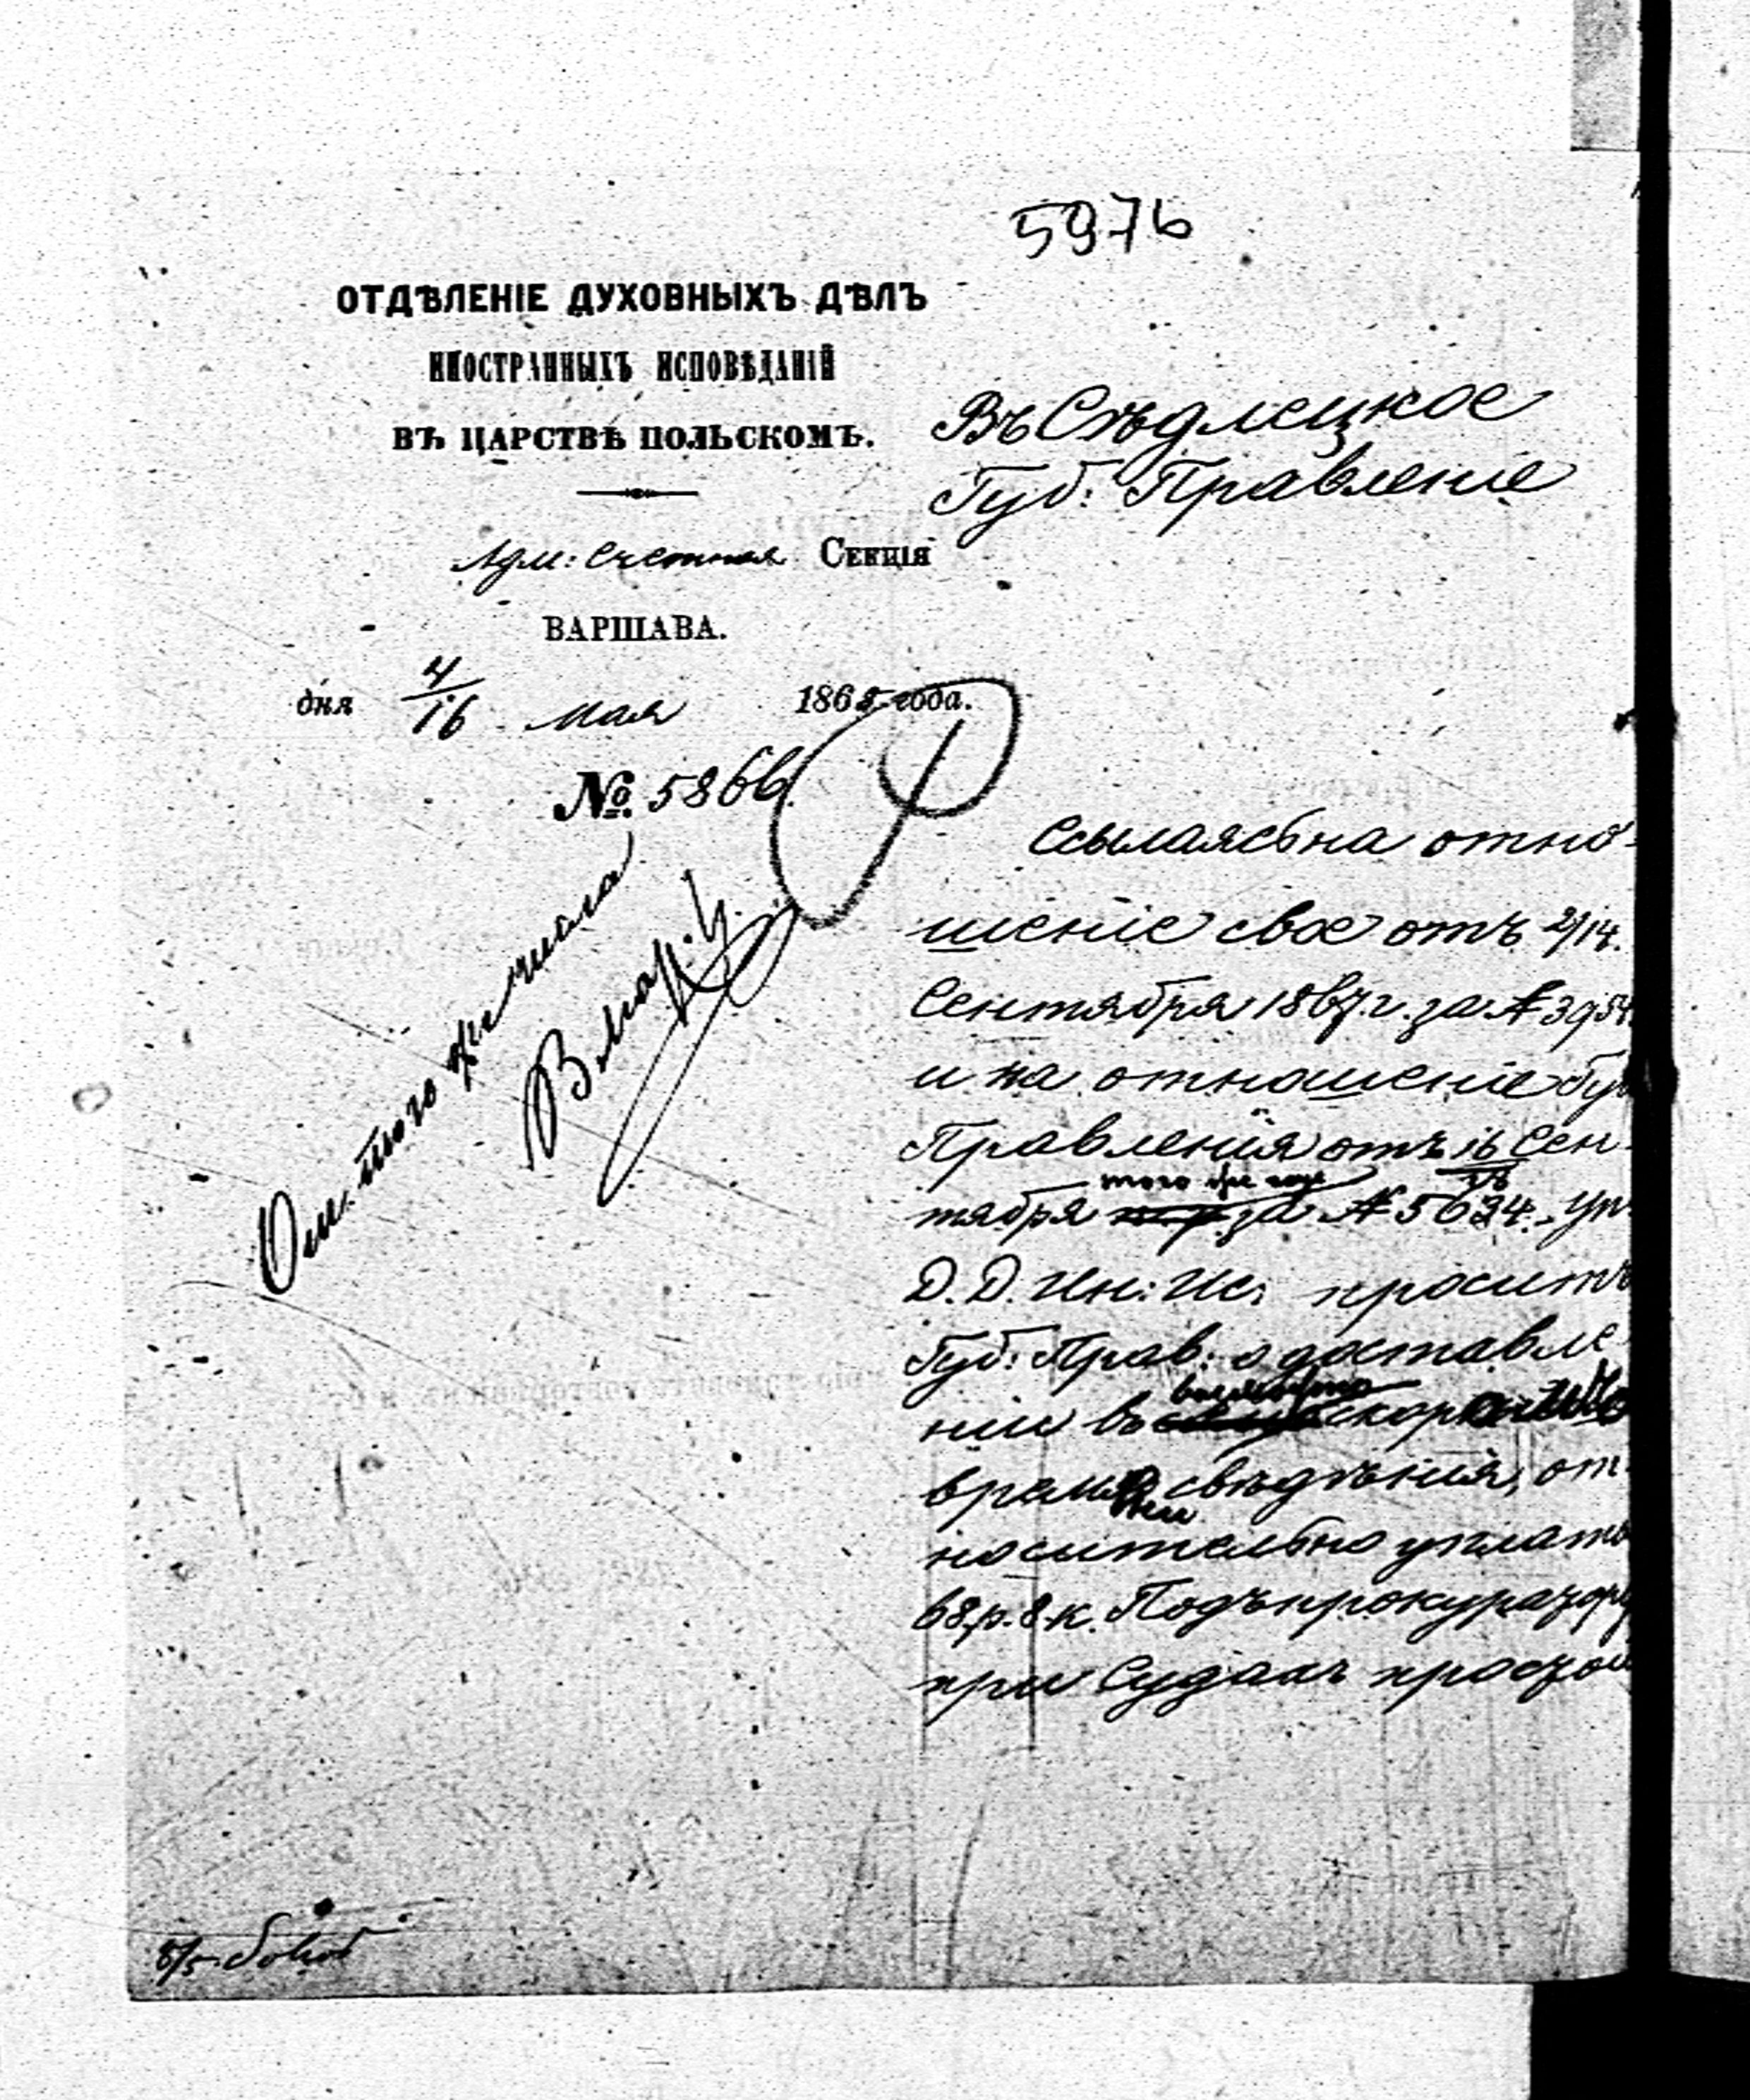 5976
ОТДѢЛЕНІЕ ДУХОВНЫХЪ ДѢЛЪ
ИНОСТРАННЫХЪ ИСПОВѢДАНІЙ
ВЪ ЦАРСТВѢ ПОЛЬСКОМЪ.
Въ Сѣдлецкое
Губ: Правленіе
Адм: Счетная СЕКЦІЯ
ВАРШАВА.
дня 4/16 мая 1868 года.
№ 5866.
Ссылаясь на отно-
шеніе свое отъ 2/14.
Сентября 1867 г. за № 3954
и на отношеніе Губ
Правленія отъ 16 Сен-
того же года
тября за № 5634. Уп.
Д. Д. Ин: Ис: проситъ
Губ: Прав: о доставле-
ніи въ скор
время свѣдѣнія, от-
носительно уплаты
68 р. 8 к. Подъпрокуратору
при Судахъ
Отъ того же числа
8/5